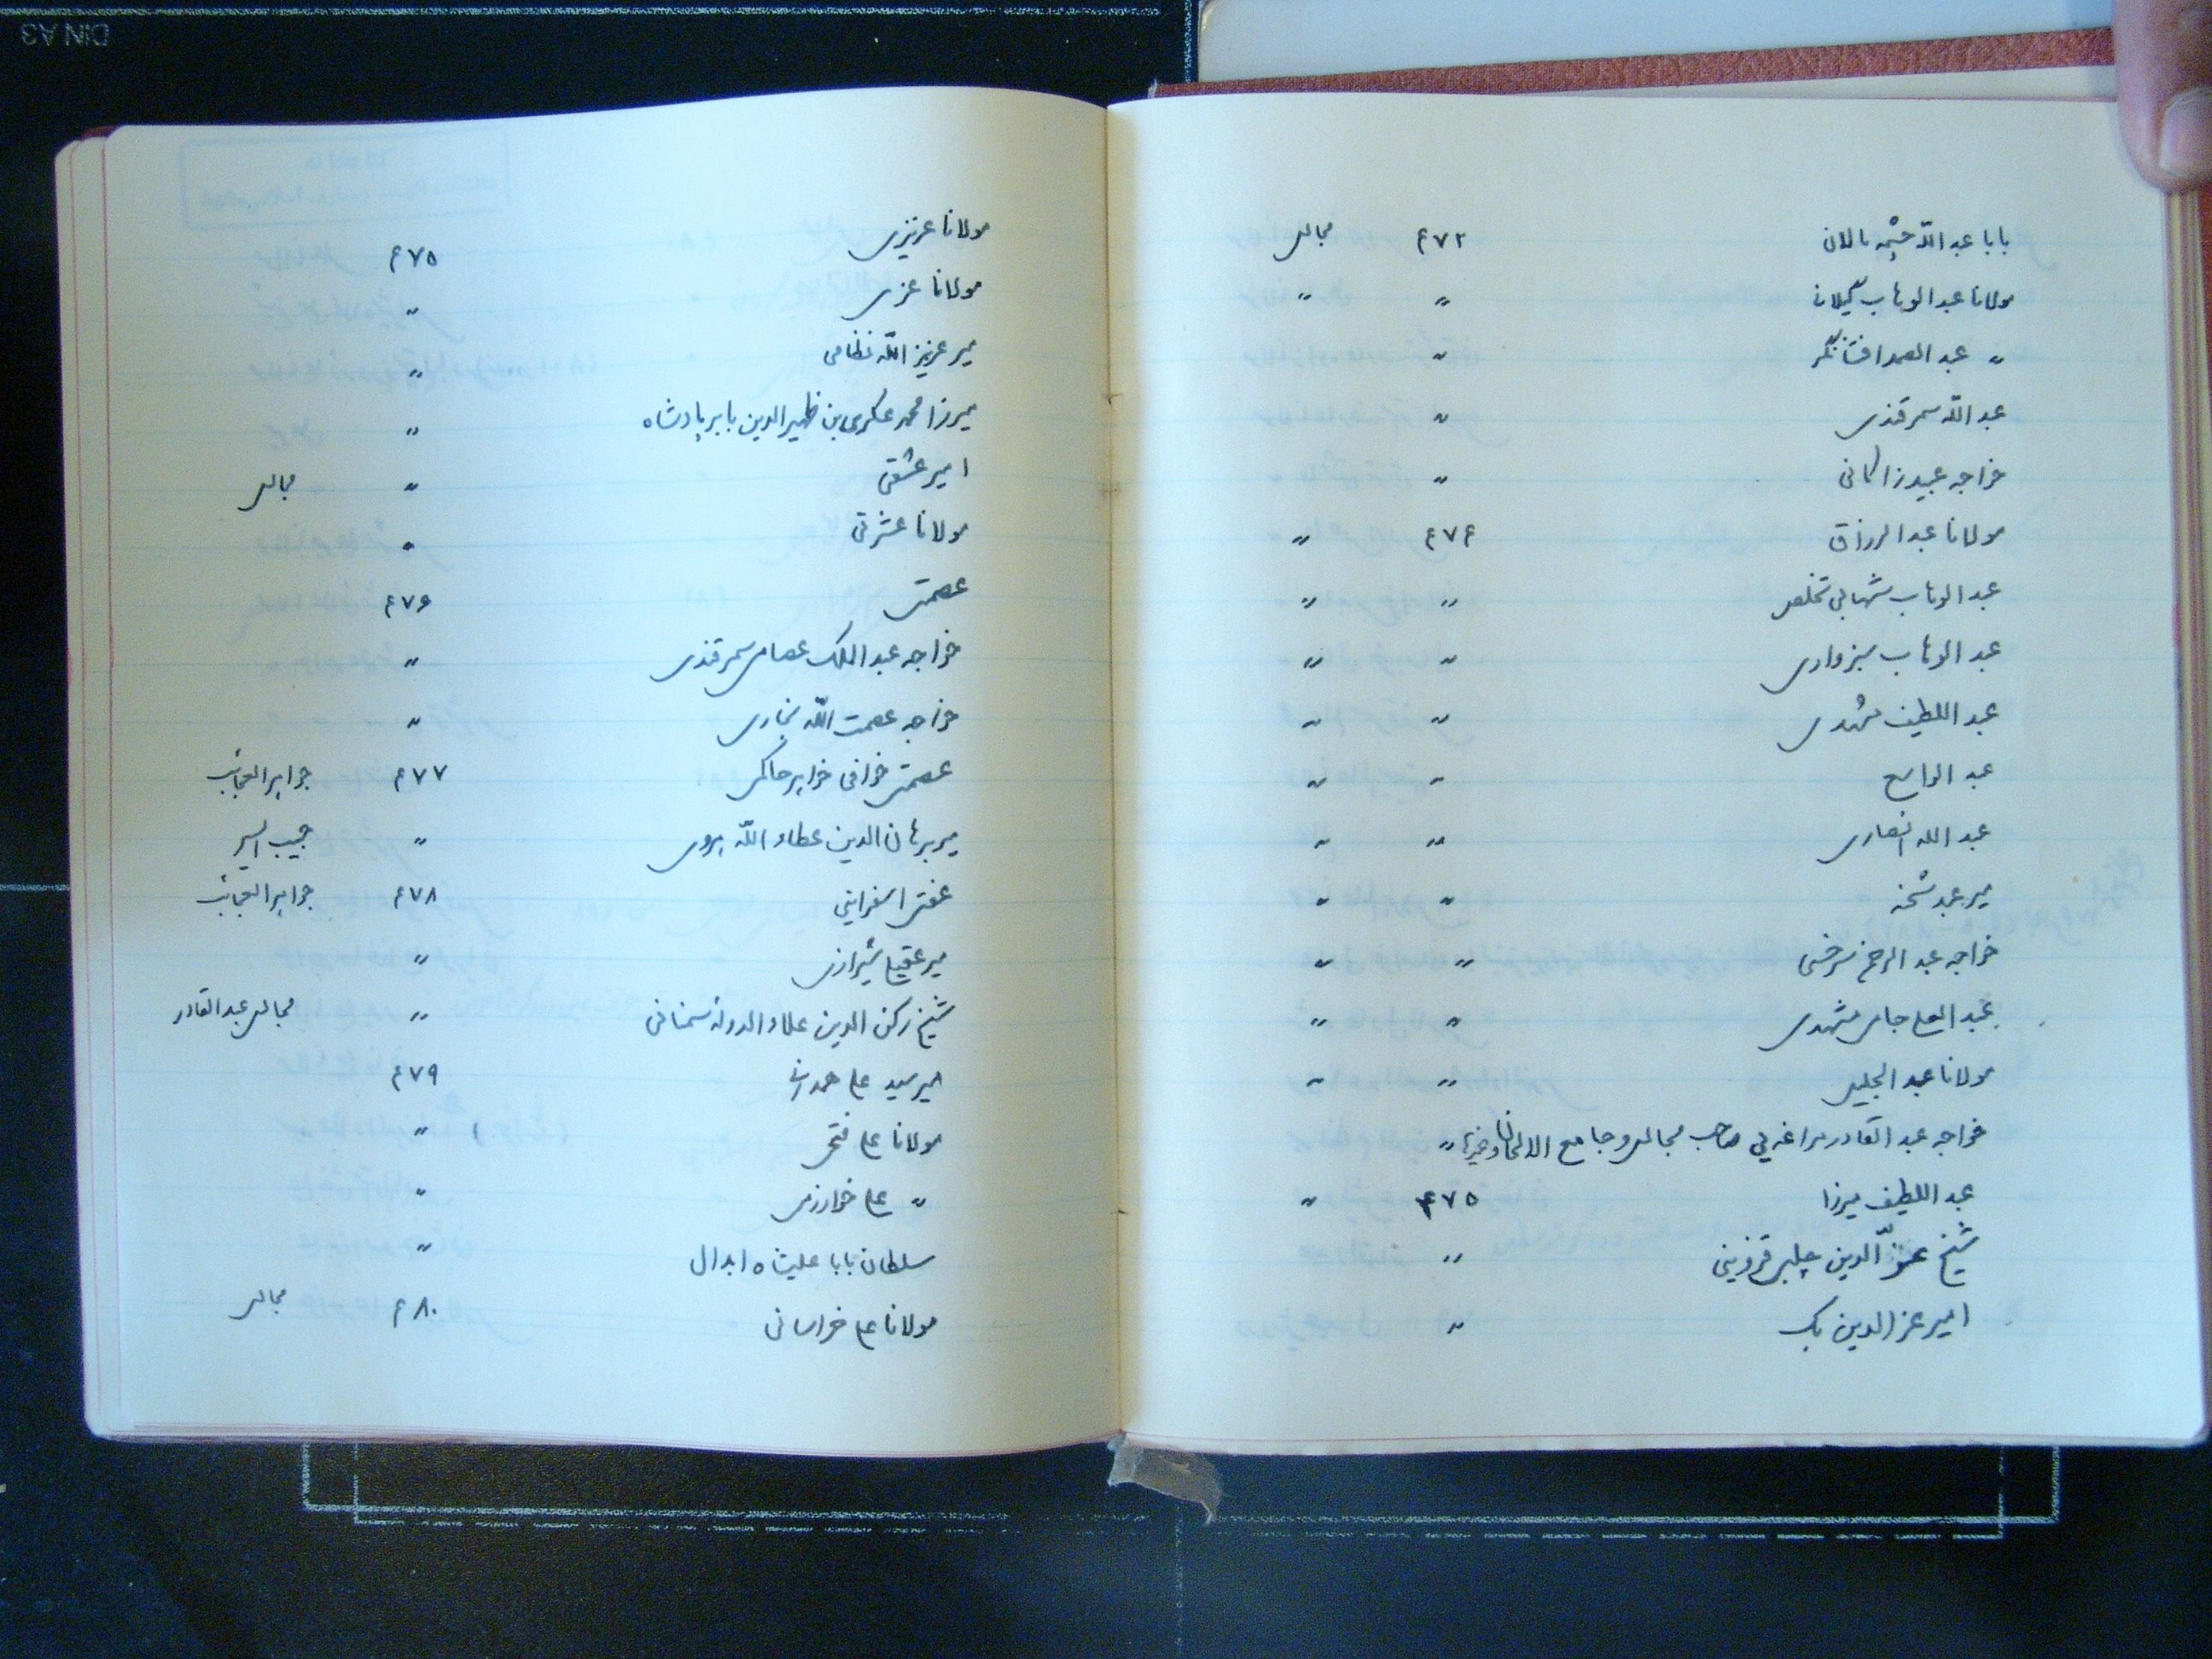 بابا عبدالله چشمه مالان ۴۷۳ مجالس
مولانا عبدالوهاب گیلان " "
" عبدالصمد افشانگر "
عبدالله سمرقندی "
خواجه عبید زاکانی "
مولانا عبدالرزاق ۴۷۴ "
عبدالوهاب شهابی تخلص " "
عبدالوهاب سبزواری " "
عبداللطیف مشهدی " "
عبدالواسع " "
عبدالله انصاری " "
میر عبد شحنه " "
خواجه عبدالرحمن سرخسی " "
عبدالعلی جامی مشهدی " "
مولانا عبدالجلیل " "
خواجه عبدالقادر مراغه‌یی صاحب مجالس و جامع الالحان وغیرها "
عبداللطیف میرزا ۴۷۵ "
شیخ عزّالدین چلبی قزوینی "
امیر عزالدین بک "
مولانا عزیزی ۴۷۵
مولانا عزی "
میر عزیزالله نظامی "
میرزا محمد عسکری بن ظهیرالدین بابر پادشاه "
امیر عشقی " مجالس
مولانا عشرتی "
عصمتی ۴۷۶
خواجه عبدالملک عصامی سمرقندی "
خواجه عصمت الله بخاری "
عصمتی خوافی خواهر حاکی ۴۷۷ جواهر العجائب
میر برهان الدین عطاء الله هروی " حبیب السیر
عفتی اسفراینی ۴۷۸ جواهر العجائب
میر عقیل شیرازی "
شیخ رکن الدین علاء الدوله سمنانی " مجالس عبدالقادر
امیر سید علی همدانی ۴۷۹
مولانا علی فتحی "
" علی خوارزمی "
سلطان بابا علیشاه ابدال "
مولانا علی خراسانی ۴۸۰ مجالس
DIN A3